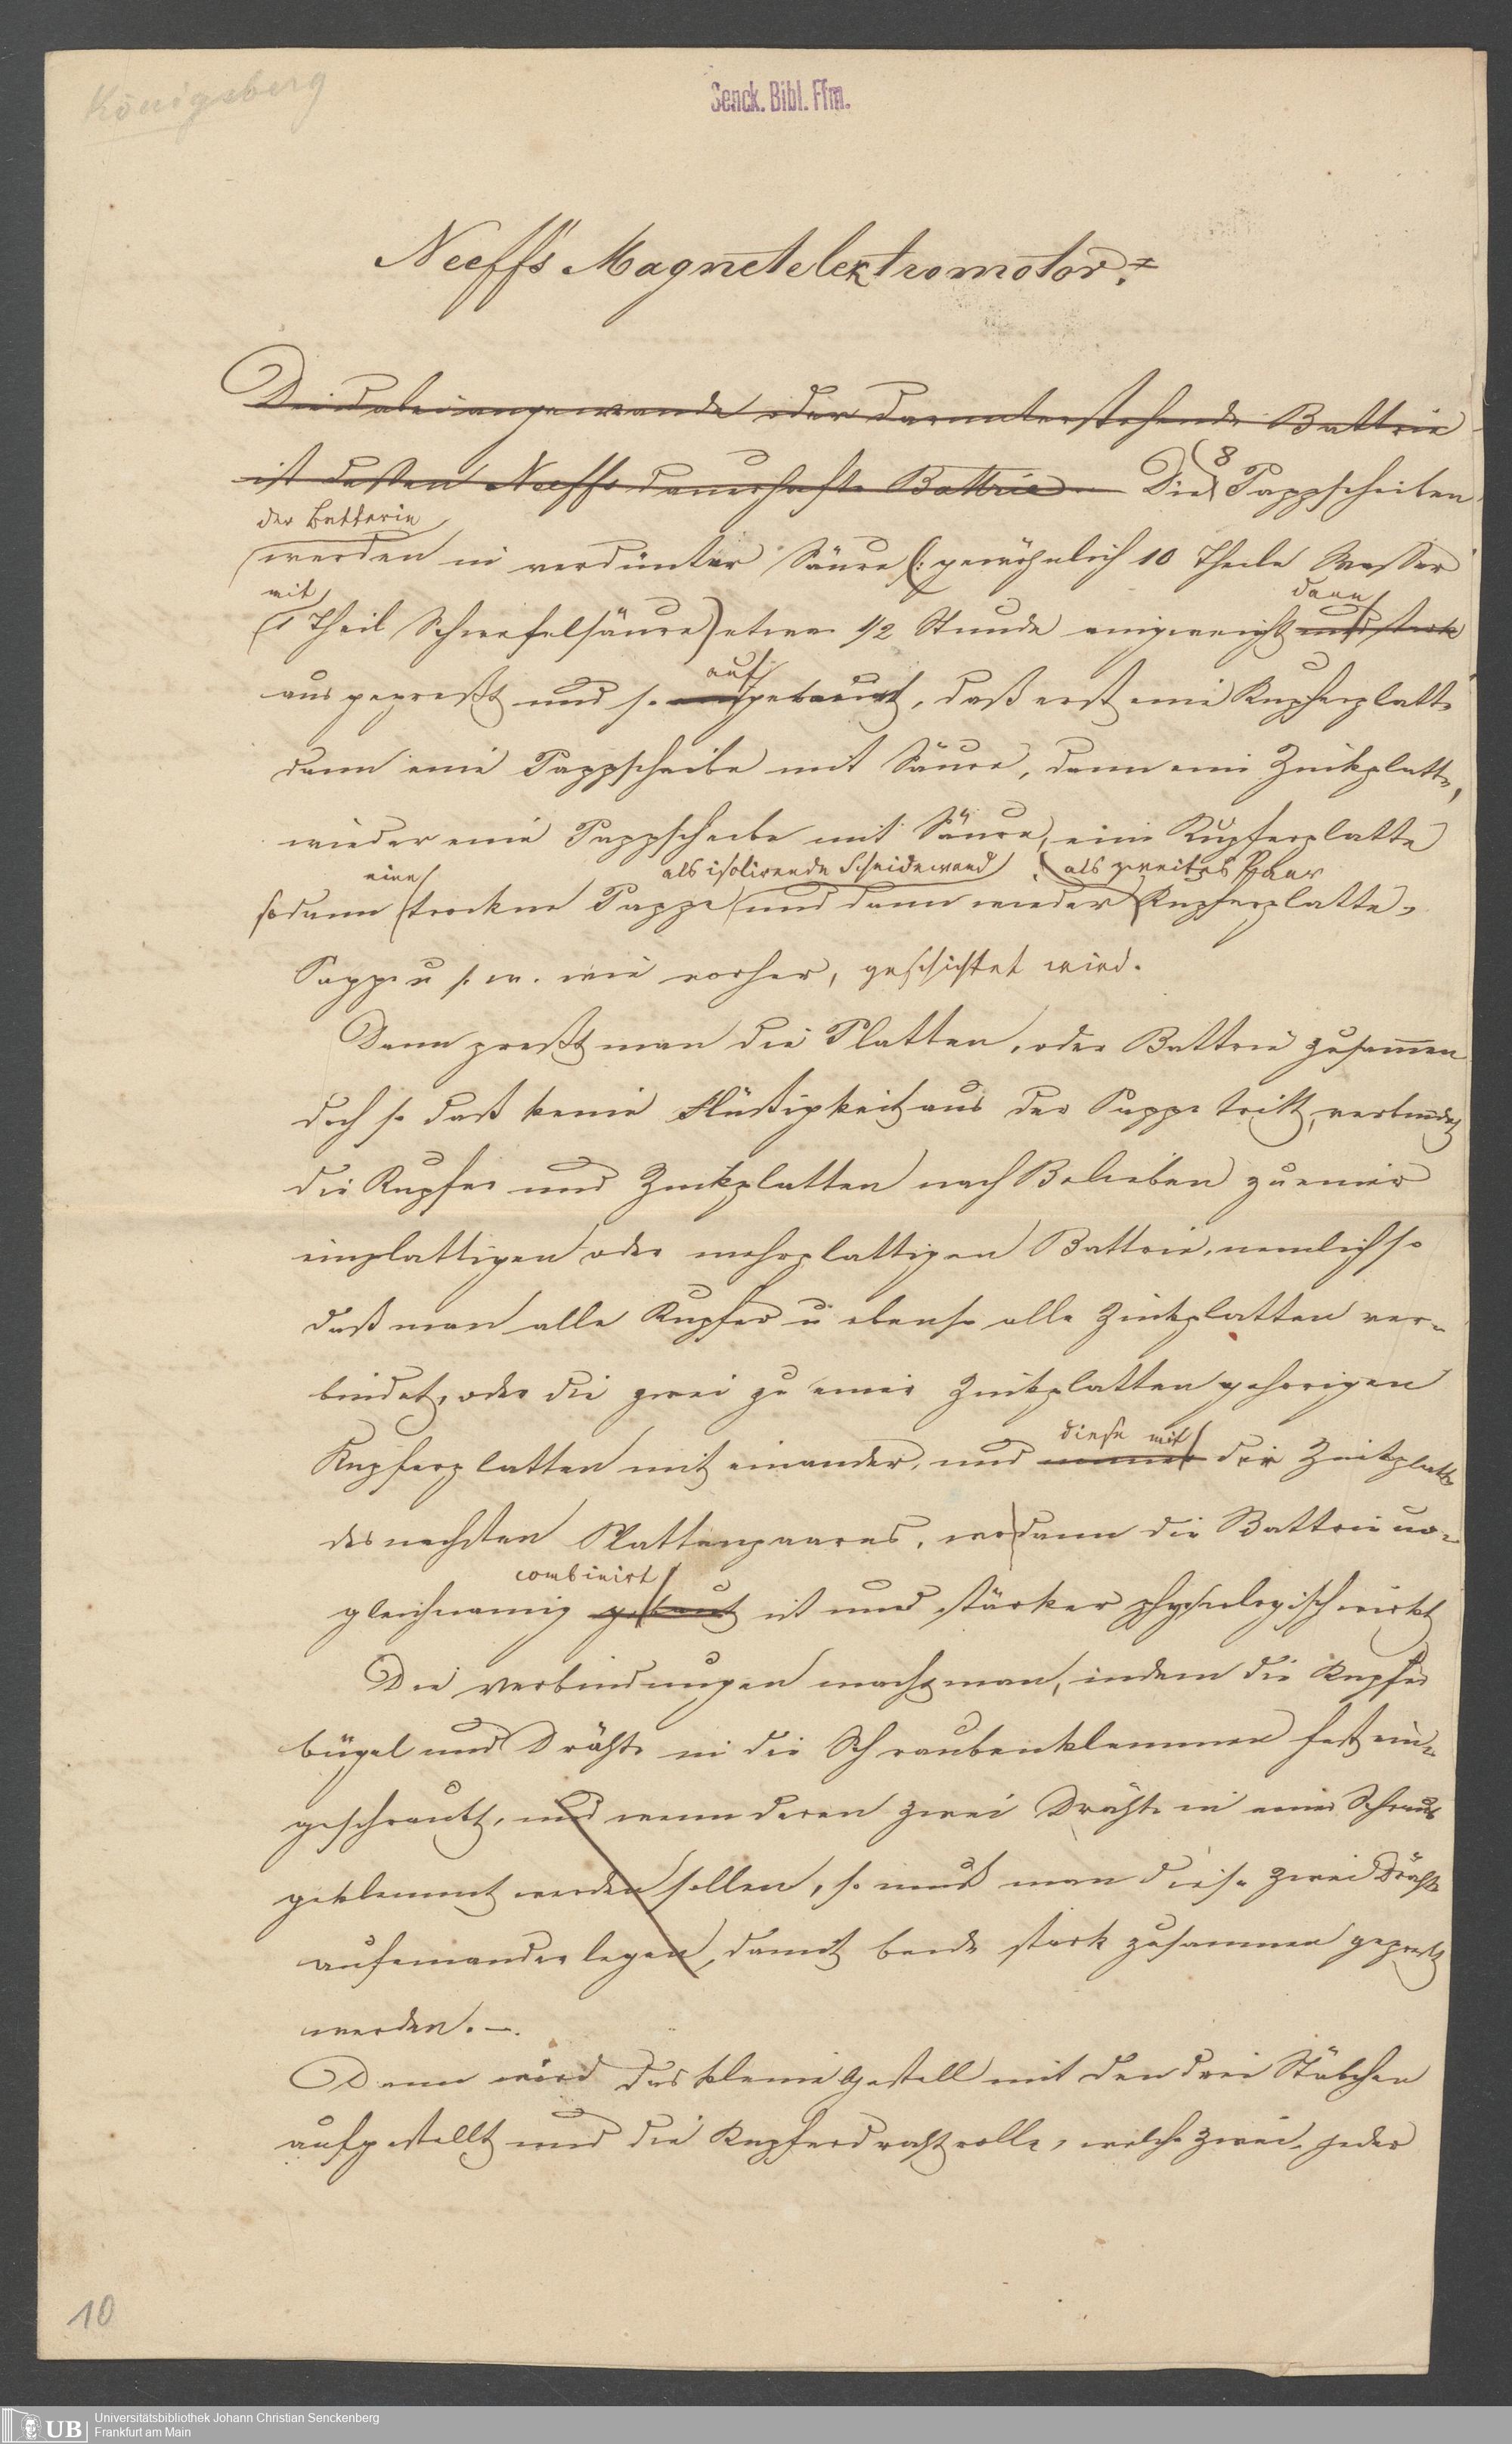 Königsberg
Senck. Bibl. Ffm.
Neeff's Magnetelektromotor.
Die dabei angewande oder darunterstehende Battrie
ist dessen Neeffs dauerhafte Battrie. Die 8 Pappscheiben
der Batterie
werden in verdünter Säure (: gewöhnlich 10 Theile Wasser
mit dann
1 Theil Schwefelsäure) etwa 1/2 Stunde eingeweicht und stark
auf
ausgepreßt und so gebaut, daß erst eine Kupferplatte
dann eine Pappscheibe mit Säure, dann eine Zinkplatte,
wieder eine Pappscheibe mit Säure, eine Kupferplatte
eine als isolirende Scheidewand als zweites Paar
sodann trockne Pappe und dann wieder Kupferplatte,
Pappe u. s. w. wie vorher, geschichtet wird.
Dann preßt man die Platten, oder Battrie zusammen
doch so daß keine Flüßigkeit aus der Pappe tritt, verbindet
die Kupfer und Zinkplatten nach Belieben zu einer
einplattigen oder mehrplattigen Battrie, nemlich so
daß man alle Kupfer u ebenso alle Zinkplatten ver-
bindet, oder die zwei zu einer Zinkplatten gehorigen
diese mit
Kupferplatten mit einander, und immer der Zinkplatte
des nechsten Plattenpaares, wo dann die Battrie un-
combinirt
gleichnamig gebaut ist und stärker physiologisch wirkt
Die Verbindungen macht man, indem die Kupfer
bügel und Dräthe in die Schraubenklemmen fest ein-
geschraubt, und wenn deren zwei Dräthe in eine Schraube
geklemmt werden sollen, so muß man diese zwei Dräthe
aufeinander legen, damit beide stark zusammen gepreßt
werden. —.
Dann wird das kleine Gestell mit den drei Stäbchen
aufgestellt und die Kupferdrahtrolle, welche zwei jeder
10
UB
Universitätsbibliothek Johann Christian Senckenberg
Frankfurt am Main